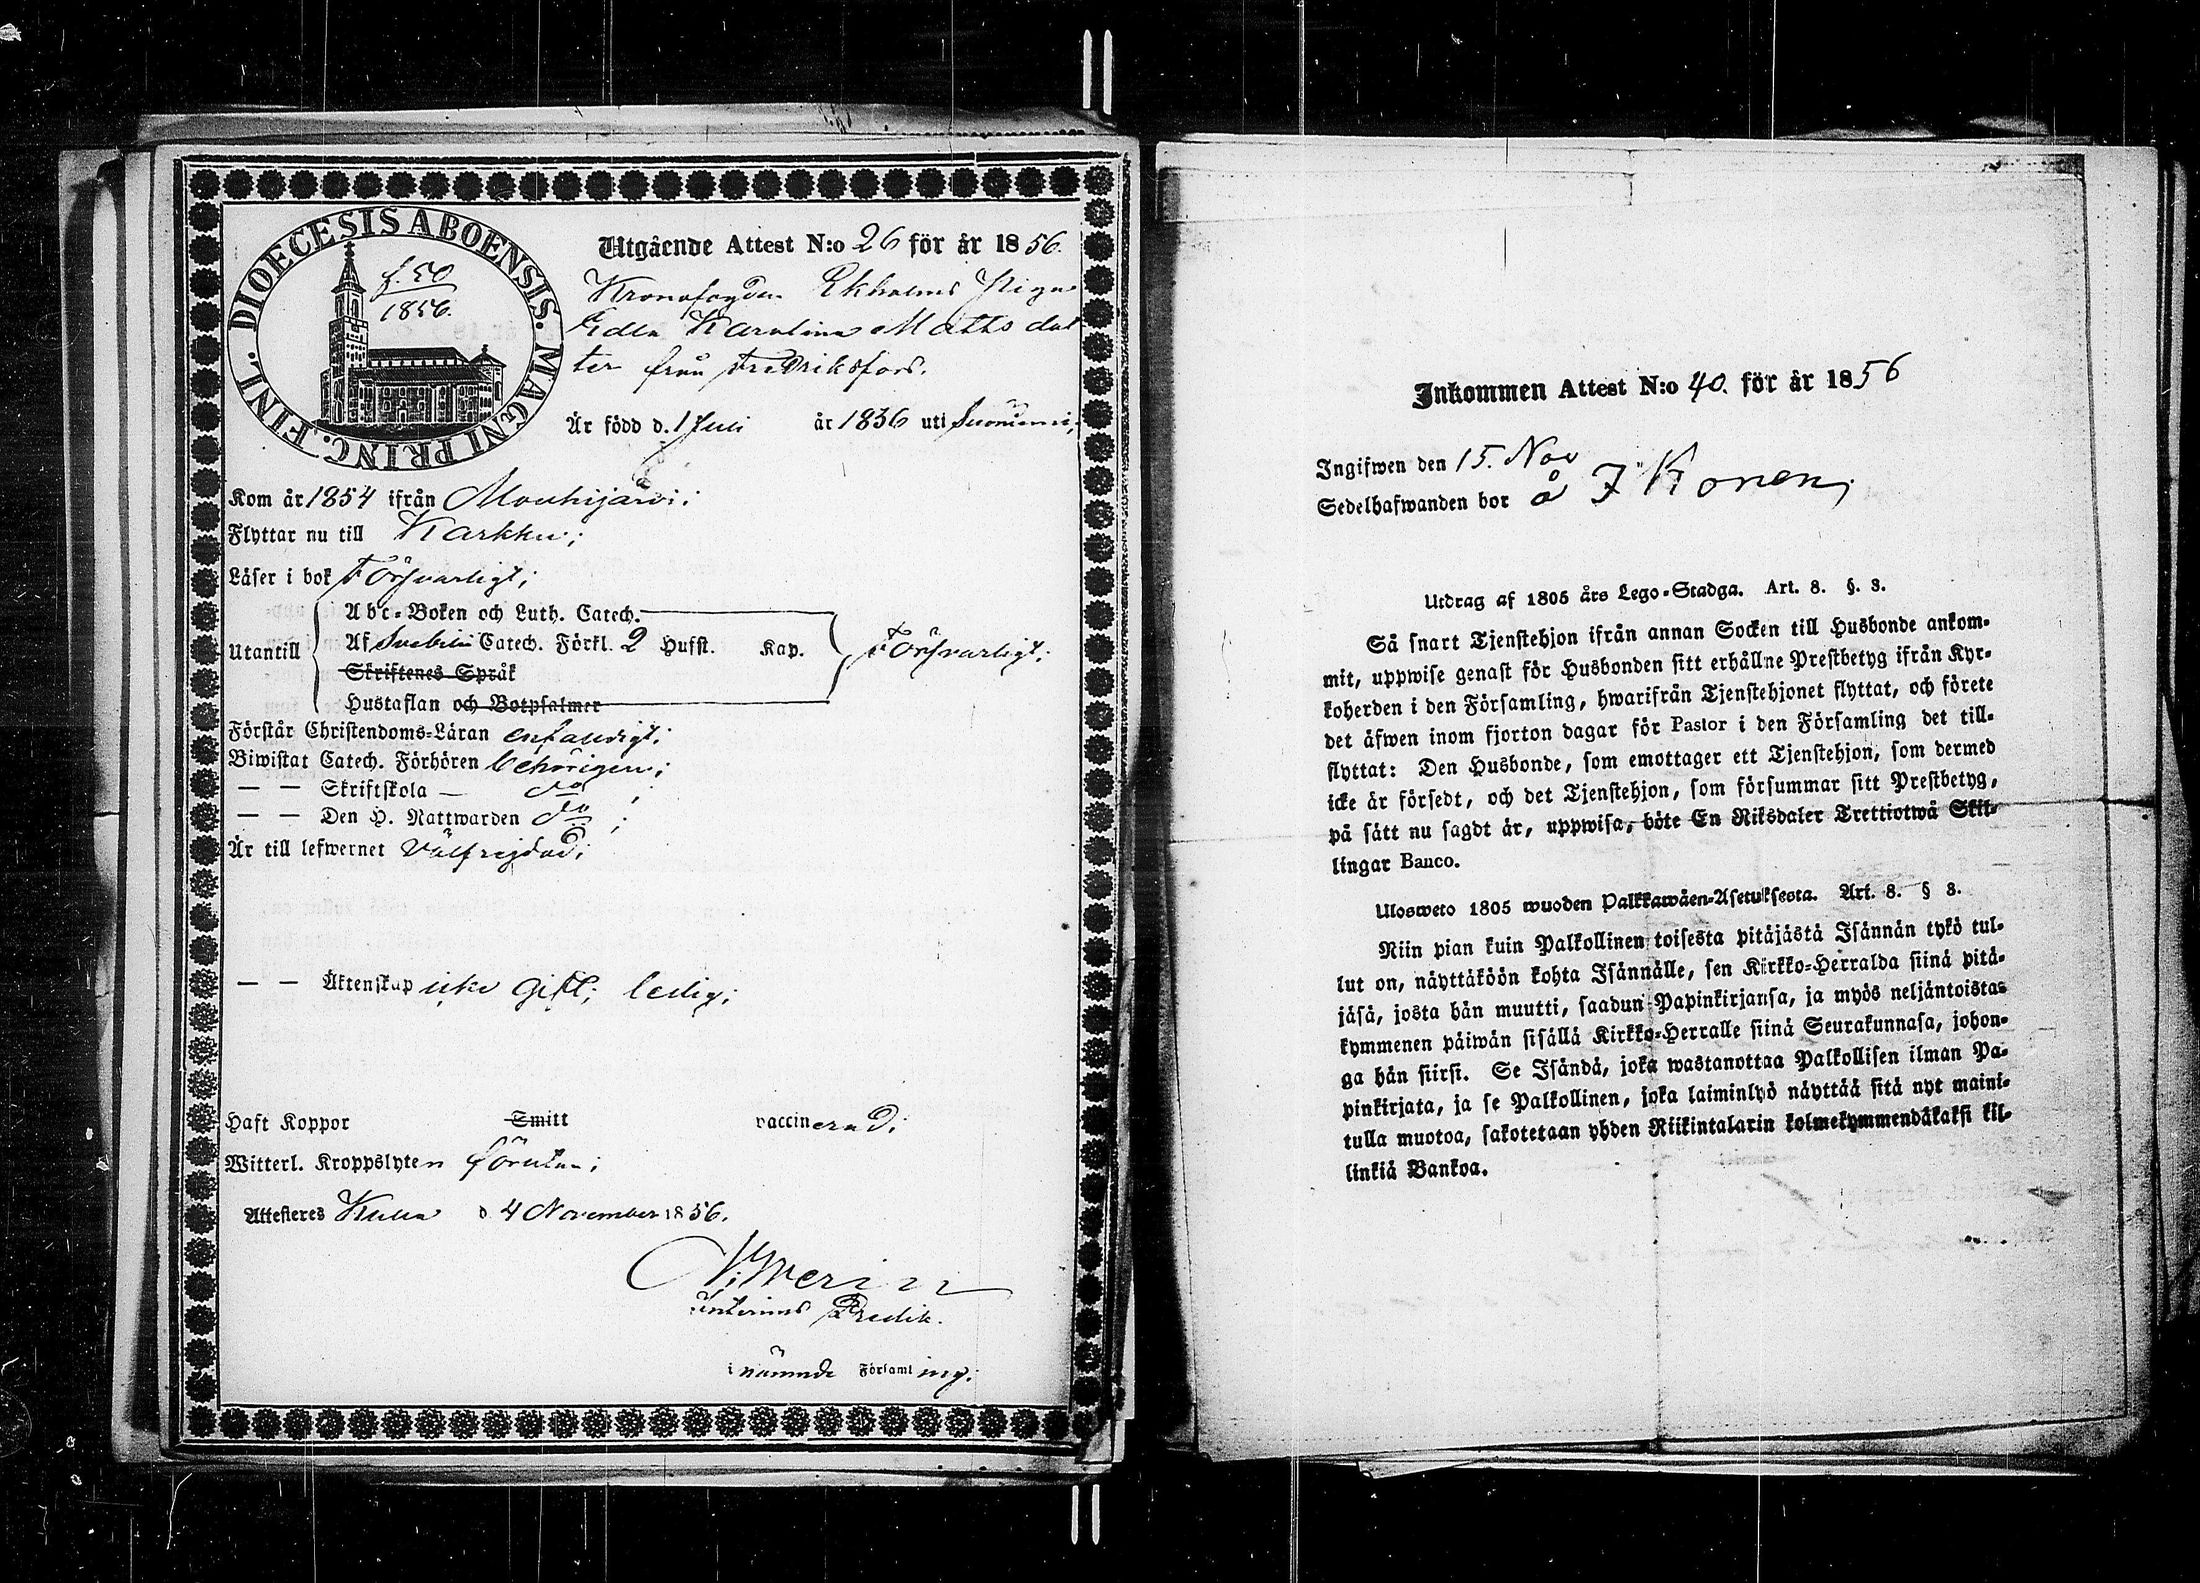 DIOECESIS ABOENSIS. MAGNI PRINC. FINL.
f. 50
1856.
Utgående Attest N:o 26 för år 1856.
Kronofogden Ekholms Pigan
Edla Karolina Mattsdot
ter från Fredriksfors.
Är född d. 1 Juli år 1836 uti Suoniemi;
Kom år 1854 ifrån Mouhijärvi;
Flyttar nu till Karkku;
Läser i bok Försvarligt;
Abc-Boken och Luth. Catech.
Utantill Af Svebilii Catech. Förkl. 2 Hufst. Kap. Försvarligt;
Skriftenes Språk
Hustaflan och Botpsalmer
Förstår Christendoms-Läran enfaldigt;
Biwistat Catech. Förhören behörigen;
— — Skriftskola — do ;
— — Den H. Nattwarden do ;
Är till lefwernet Välfrejdad;
— — Äktenskap icke gift; ledig;
Haft Koppor Smitt vaccinerad;
Witterl. Kroppslyten förutan;
Attesteres Kulla d 4 November 1856.
Interims Predik.
i nämnde Församling;
Inkommen Attest N:o 40. för år 1856
Ingifwen den 15. Nov
Sedelhafwanden bor å Ikonen;
Utdrag af 1805 års Lego-Stadga. Art. 8. §. 3.
Så snart Tjenstehjon ifrån annan Socken till Husbonde ankom-
mit, uppwise genast för Husbonden sitt erhållne Prestbetyg ifrån Kyr-
koherden i den Församling, hwarifrån Tjenstehjonet flyttat, och förete
det äfwen inom fjorton dagar för Pastor i den Församling det till-
flyttat: Den Husbonde, som emottager ett Tjenstehjon, som dermed
icke är försedt, och det Tjenstehjon, som försummar sitt Prestbetyg,
på sätt nu sagdt är, uppwisa, böte En Riksdaler Trettiotwå Skil-
lingar Banco.
Ulosweto 1805 wuoden Palkkawäen-Asetuksesta. Art. 8. § 3.
Niin pian kuin Palkollinen toisesta pitäjästä Isännän tykö tul-
lut on, näyttäköön kohta Isännälle, sen Kirkko-Herralda siinä pitä-
jäsä, josta hän muutti, saadun Papinkirjansa, ja myös neljäntoista-
kymmenen päiwän sisällä Kirkko-Herralle siinä Seurakunnasa, johon-
ga hän siirsi. Se Isändä, joka wastanottaa Palkollisen ilman Pa-
pinkirjata, ja se Palkollinen, joka laiminlyö näyttää sitä nyt maini-
tulla muotoa, sakotetaan yhden Riikintalarin kolmekymmendäkaksi kil-
linkiä Bankoa.